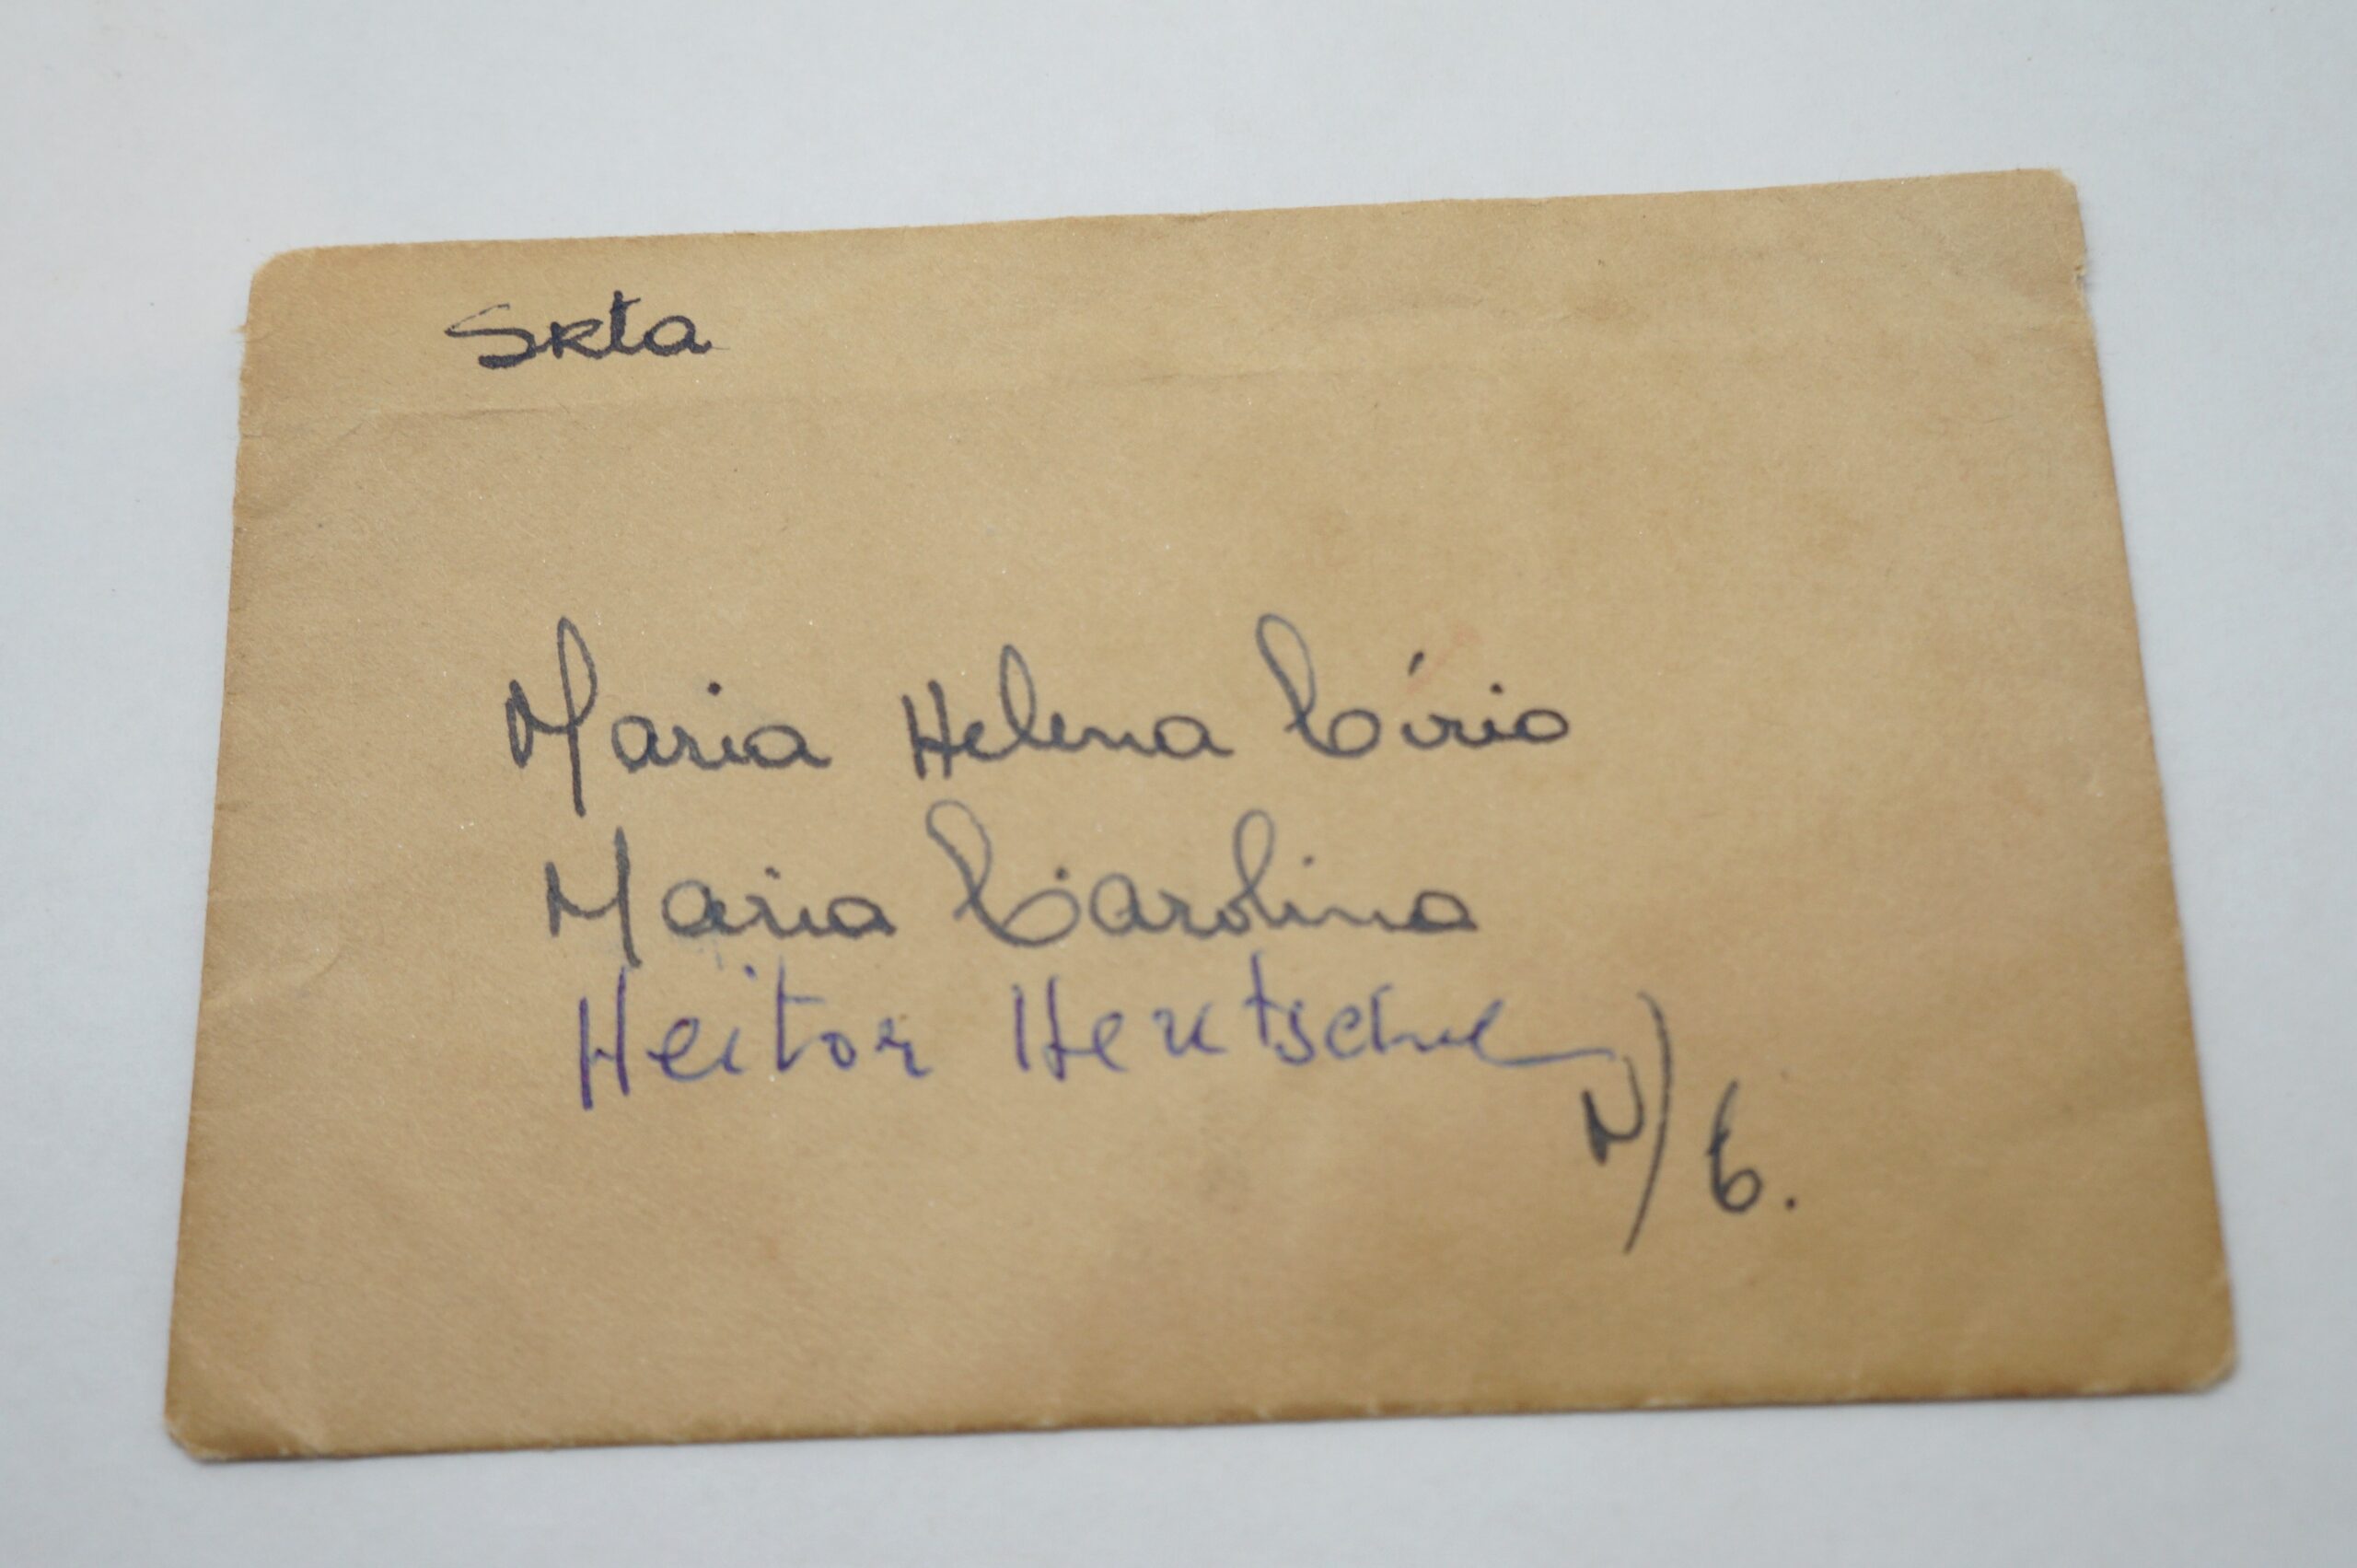 Srta
Maria Helena Círio
Maria Carolina
Heitor Hentschel
N/C.